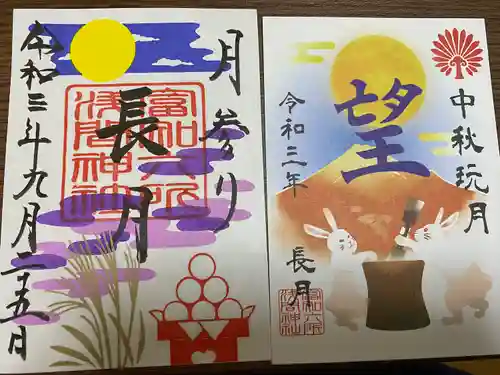 月参り
長月
富知六所
浅間神社
令和三年九月二十五日
中秋玩月
望
令和三年
長月
富知六所
浅間神社